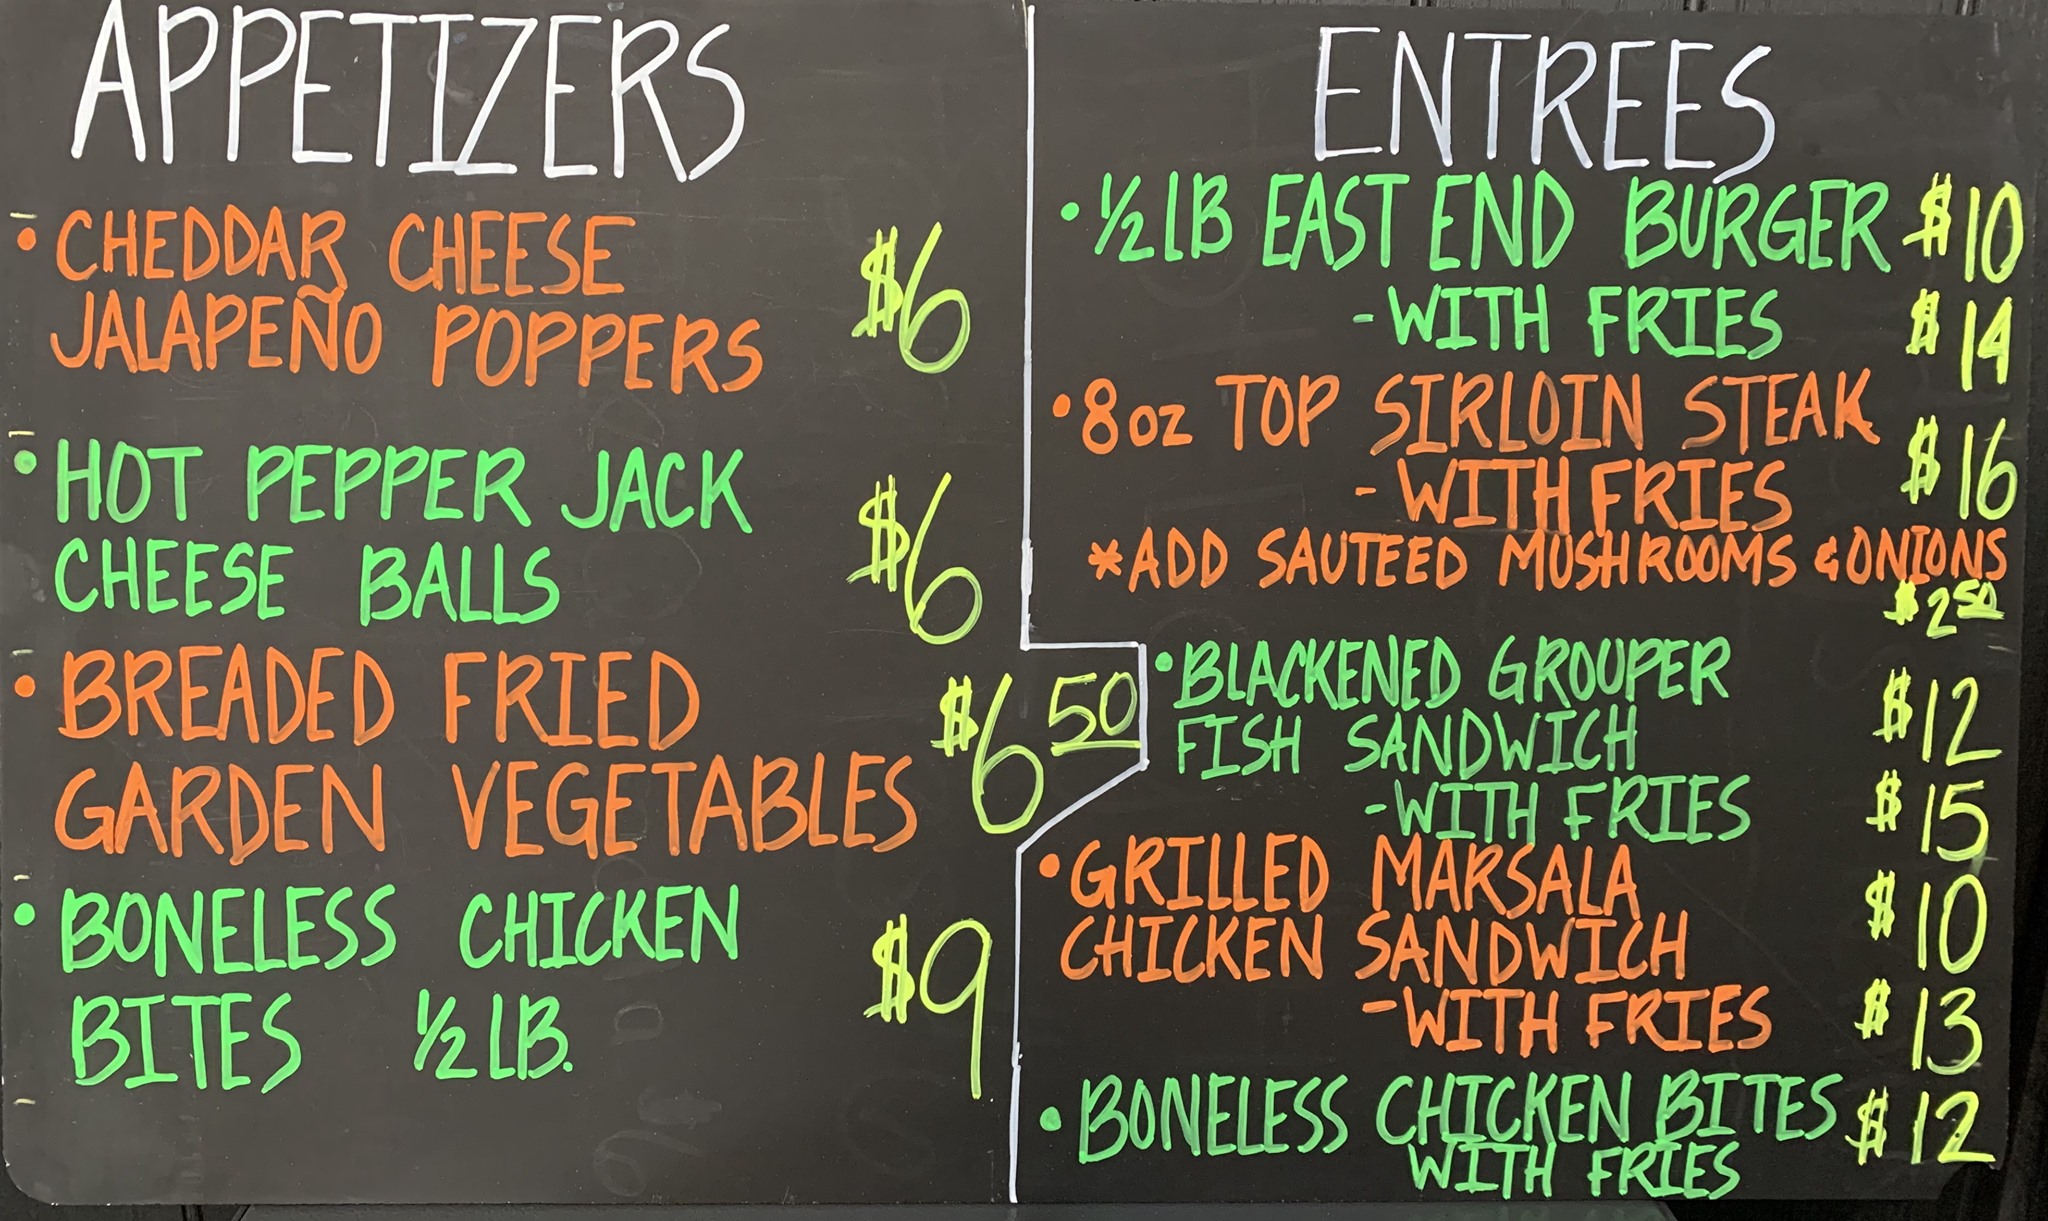 APPETIZERS
• CHEDDAR CHEESE
JALAPEÑO POPPERS $6
• HOT PEPPER JACK
CHEESE BALLS $6
• BREADED FRIED
GARDEN VEGETABLES $6 50
• BONELESS CHICKEN
BITES ½ LB. $9
ENTREES
• ½ LB EAST END BURGER $10
- WITH FRIES $14
• 8oz TOP SIRLOIN STEAK
- WITH FRIES $16
*ADD SAUTEED MUSHROOMS & ONIONS
$2 50
• BLACKENED GROUPER
FISH SANDWICH $12
- WITH FRIES $15
• GRILLED MARSALA
CHICKEN SANDWICH $10
- WITH FRIES $13
• BONELESS CHICKEN BITES $12
WITH FRIES